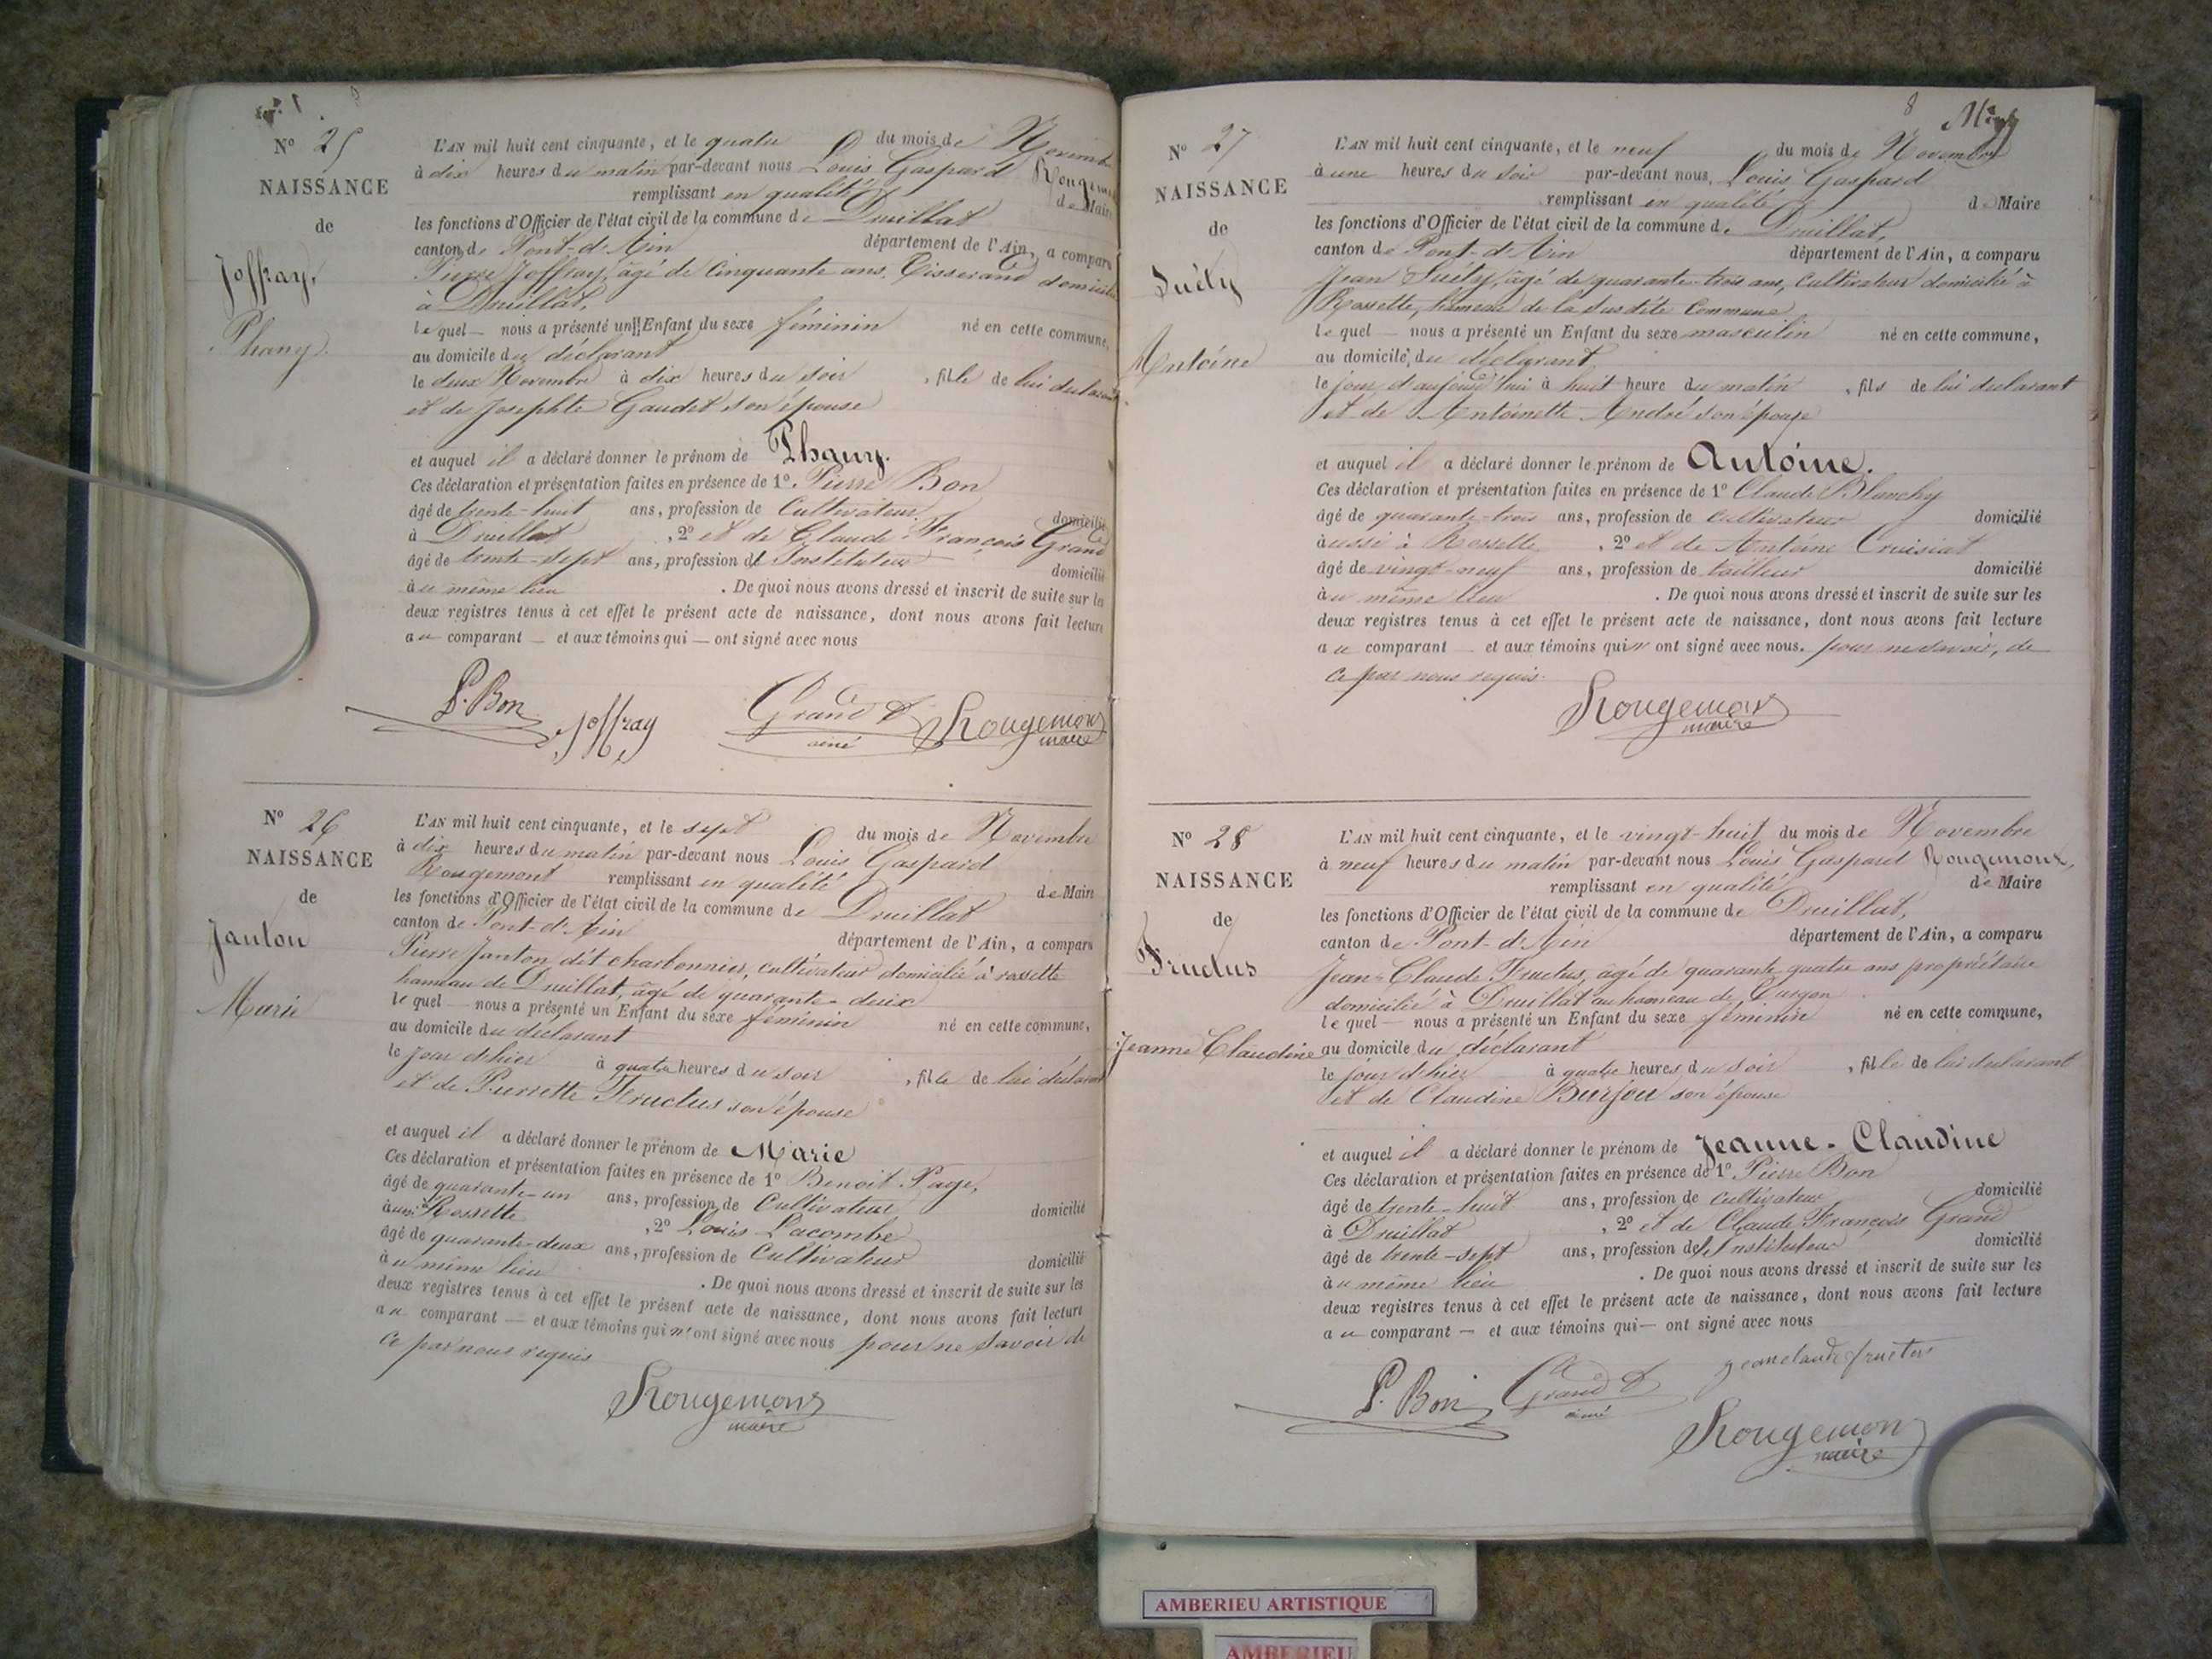 Nº 25
NAISSANCE
de
Joffray,
Phany.
L'AN mil huit cent cinquante, et le quatre du mois de Novembre
à dix heures du matin par-devant nous Louis Gaspard Rougemont
remplissant en qualité de Maire
les fonctions d'Officier de l'état civil de la commune de Druillat
canton de Pont-d'Ain département de l'Ain, a comparu
Pierre Joffray, âgé de Cinquante ans, Tisserand domicilié
à Druillat,
lequel — nous a présenté un Enfant du sexe féminin né en cette commune,
au domicile du déclarant
le deux Novembre à dix heures du soir , fille de lui déclarant
et de Josephte Gaudet son épouse
et auquel il a déclaré donner le prénom de Phany.
Ces déclaration et présentation faites en présence de 1º. Pierre Bon
âgé de trente-huit ans, profession de Cultivateur domicilié
à Druillat , 2º et de Claude François Grand
âgé de trente-sept ans, profession d'Instituteur domicilié
au même lieu . De quoi nous avons dressé et inscrit de suite sur les
deux registres tenus à cet effet le présent acte de naissance, dont nous avons fait lecture
au comparant — et aux témoins qui — ont signé avec nous
P. Bon Joffray Grand aîné Rougemont maire
Nº 26
NAISSANCE
de
Janton
Marie
L'AN mil huit cent cinquante, et le sept du mois de Novembre
à dix heures du matin par-devant nous Louis Gaspard
Rougemont remplissant en qualité de Maire
les fonctions d'Officier de l'état civil de la commune de Druillat
canton de Pont-d'Ain département de l'Ain, a comparu
Pierre Janton dit charbonnier, cultivateur domicilié à rossette
hameau de Druillat, âgé de quarante-deux
lequel — nous a présenté un Enfant du sexe féminin né en cette commune,
au domicile du déclarant
le jour d'hier à quatre heures du soir , fille de lui déclarant
et de Pierrette Fructus son épouse
et auquel il a déclaré donner le prénom de Marie
Ces déclaration et présentation faites en présence de 1º Benoit Page,
âgé de quarante-un ans, profession de Cultivateur domicilié
à Rossette , 2º Louis Lacombe
âgé de quarante-deux ans, profession de Cultivateur domicilié
au même lieu . De quoi nous avons dressé et inscrit de suite sur les
deux registres tenus à cet effet le présent acte de naissance, dont nous avons fait lecture
au comparant — et aux témoins qui n'ont signé avec nous pour ne savoir de
ce par nous requis
Rougemont
maire
8
Nº 27
NAISSANCE
de
Suély
Antoine
L'AN mil huit cent cinquante, et le neuf du mois de Novembre
à une heures du soir par-devant nous Louis Gaspard
remplissant en qualité de Maire
les fonctions d'Officier de l'état civil de la commune de Druillat,
canton de Pont-d'Ain département de l'Ain, a comparu
Jean Suély, âgé de quarante-trois ans, Cultivateur domicilié à
Rossette, hameau de la susdite Commune
lequel — nous a présenté un Enfant du sexe masculin né en cette commune,
au domicile du déclarant
le jour d'aujourd'hui à huit heure du matin , fils de lui déclarant
et de Antoinette André son épouse
et auquel il a déclaré donner le prénom de Antoine.
Ces déclaration et présentation faites en présence de 1º Claude Blanchy
âgé de quarante-trois ans, profession de cultivateur domicilié
aussi à Rossette , 2º et de Antoine Cruisiat
âgé de vingt-neuf ans, profession de tailleur domicilié
au même lieu . De quoi nous avons dressé et inscrit de suite sur les
deux registres tenus à cet effet le présent acte de naissance, dont nous avons fait lecture
au comparant — et aux témoins qui n'ont signé avec nous. pour ne savoir, de
ce par nous requis.
Rougemont
maire
Nº 28
NAISSANCE
de
Fructus
Jeanne Claudine
L'AN mil huit cent cinquante, et le vingt-huit du mois de Novembre
à neuf heures du matin par-devant nous Louis Gaspard Rougemont,
remplissant en qualité de Maire
les fonctions d'Officier de l'état civil de la commune de Druillat,
canton de Pont-d'Ain département de l'Ain, a comparu
Jean-Claude Fructus, âgé de quarante quatre ans propriétaire
domicilié à Druillat au hameau de Turgon
lequel — nous a présenté un Enfant du sexe féminin né en cette commune,
au domicile du déclarant
le jour d'hier à quatre heures du soir , fille de lui déclarant
et de Claudine Burjou son épouse
et auquel il a déclaré donner le prénom de Jeanne-Claudine
Ces déclaration et présentation faites en présence de 1º. Pierre Bon
âgé de trente-huit ans, profession de cultivateur domicilié
à Druillat , 2º et de Claude François Grand
âgé de trente-sept ans, profession d'Instituteur domicilié
au même lieu . De quoi nous avons dressé et inscrit de suite sur les
deux registres tenus à cet effet le présent acte de naissance, dont nous avons fait lecture
au comparant — et aux témoins qui — ont signé avec nous
jean claude fructus
P. Bon Grand aîné
Rougemont
maire
AMBERIEU ARTISTIQUE
AMBERIEU